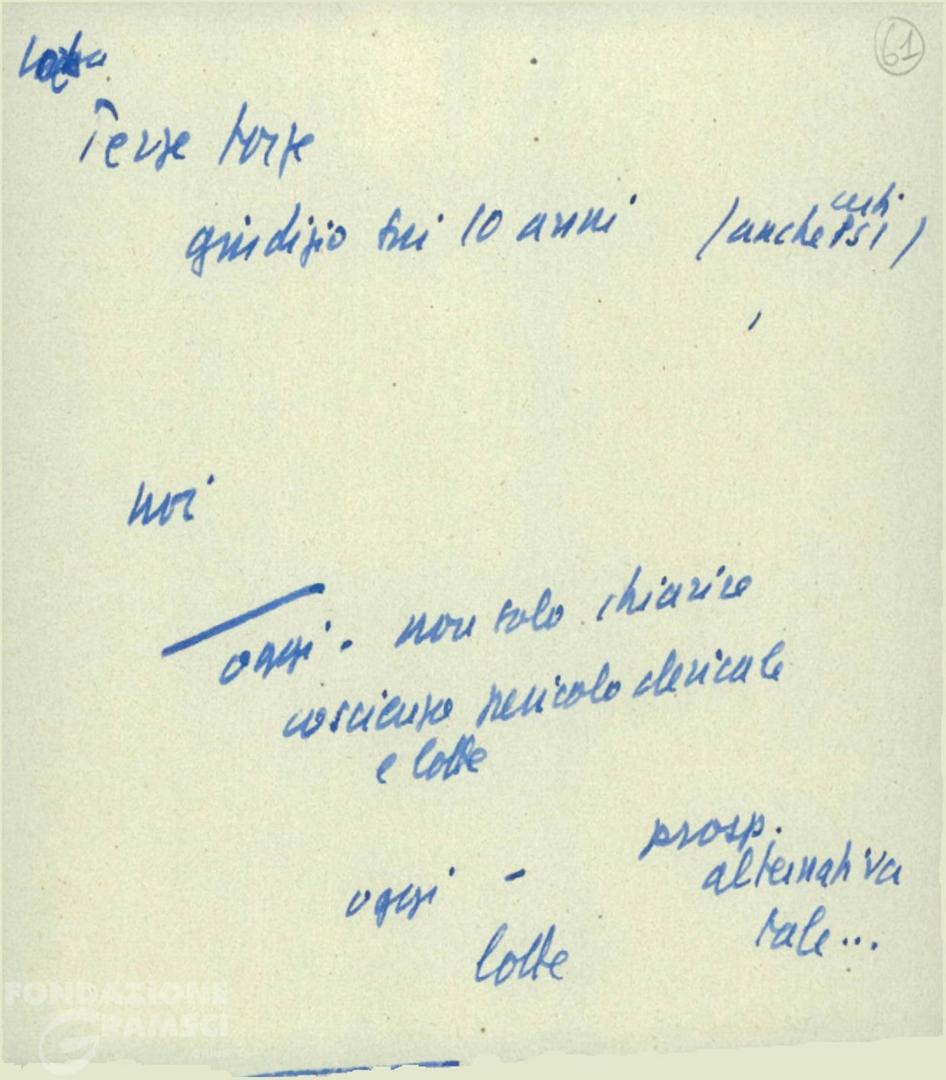 61
Terze forze
giudizio sui 10 anni (anche certi PSI)
noi
oggi - non solo chiarire
coscienza pericolo clericale
e lotte
prosp.
oggi - alternativa
lotte tale...
FONDAZIONE
GRAMSCI